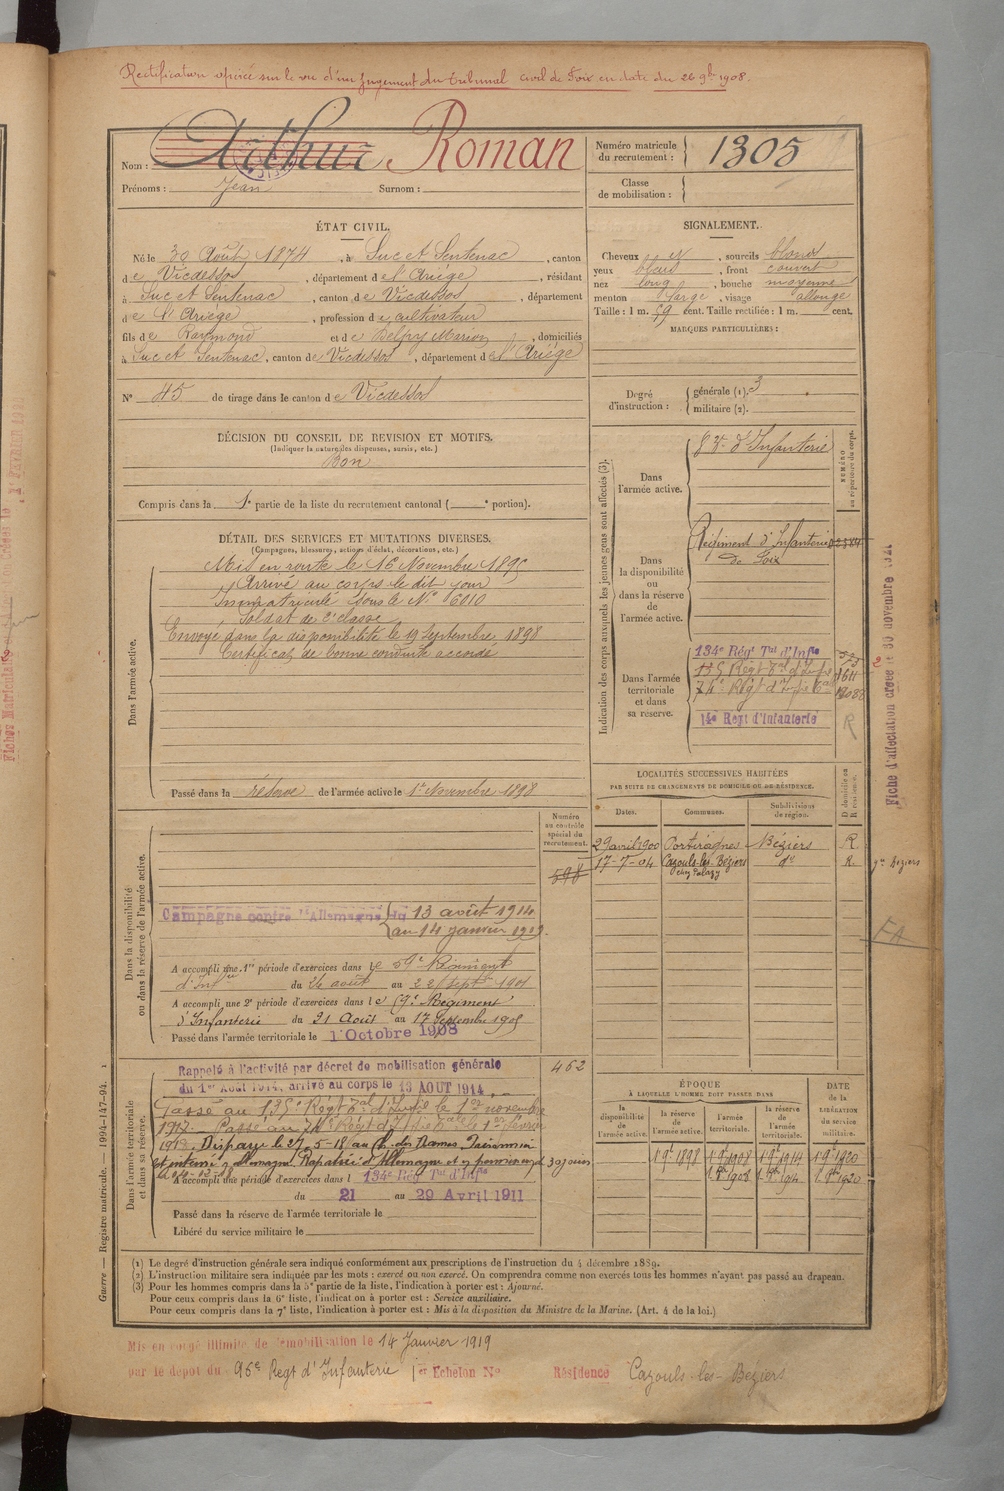 Rectification opérée sur le vu d'un jugement du tribunal civil de Foix en date du 26 9bre 1908.
Nom : Arthur Roman
Prénoms : Jean Surnom :
Numéro matricule du recrutement : 1305
Classe de mobilisation :
ÉTAT CIVIL.
Né le 30 Août 1874, à Suc et Sentenac, canton
de Vicdessos, département de l'Ariège, résidant
à Suc et Sentenac, canton de Vicdessos, département
de l'Ariège, profession de cultivateur
fils de Raymond et de Delpy Marion, domiciliés
à Suc et Sentenac, canton de Vicdessos, département de l'Ariège
N° 45 de tirage dans le canton de Vicdessos
SIGNALEMENT.
Cheveux et, sourcils blonds
yeux bleus, front couvert
nez long, bouche moyenne
menton large, visage allongé
Taille : 1 m. 59 cent. Taille rectifiée : 1 m. cent.
MARQUES PARTICULIÈRES :
Degré d'instruction : générale (1). 3
militaire (2).
DÉCISION DU CONSEIL DE REVISION ET MOTIFS.
(Indiquer la nature des dispenses, sursis, etc.)
Bon
Compris dans la 1e partie de la liste du recrutement cantonal ( e portion).
DÉTAIL DES SERVICES ET MUTATIONS DIVERSES.
(Campagnes, blessures, actions d'éclat, décorations, etc.)
Dans l'armée active.
Mis en route le 16 Novembre 1895
Arrivé au corps le dit jour
Immatriculé sous le N° 6010
Soldat de 2e classe
Envoyé dans la disponibilité le 19 Septembre 1898
Certificat de bonne conduite accordé
Passé dans la réserve de l'armée active le 1er Novembre 1898
Indication des corps auxquels les jeunes gens sont affectés (3).
NUMÉRO au répertoire du corps.
Dans l'armée active.
d'Infanterie
Dans la disponibilité ou dans la réserve de l'armée active.
Régiment d'Infanterie
de Foix
Dans l'armée territoriale et dans sa réserve.
134e Régt Tal d'Infie 573
135 Régt Tal d'Infie 1611
74e Régt d'Infie Tale
14e Regt d'Infanterie
R
LOCALITÉS SUCCESSIVES HABITÉES
PAR SUITE DE CHANGEMENTS DE DOMICILE OU DE RÉSIDENCE.
Dates. Communes. Subdivisions de région. D domicile ou R résidence.
29 avril 1900 Portiragnes Béziers R
17-7-04 Cazouls-les-Béziers do R.
FA
Fiche d'affectation créée le 30 novembre
Numéro au contrôle spécial du recrutement.
598
Dans la disponibilité ou dans la réserve de l'armée active.
Campagne contre l'Allemagne du 13 août 1914
au 14 janvier 1919.
A accompli une 1re période d'exercices dans le 59e Régiment
d'Infie du août au 22 Septe 1901
A accompli une 2e période d'exercices dans le 59e Régiment
d'Infanterie du 21 Août au 17 Septembre 1905
Passé dans l'armée territoriale le 1 Octobre 1908
462
Dans l'armée territoriale et dans sa réserve.
Rappelé à l'activité par décret de mobilisation générale
du 1er Août 1914, arrivé au corps le 13 AOUT 1914
Passé au 135e Régt Tal d'Infie le 1er novembre
1917. Passé au 74e Régt d'Infie Tale le 1er février
1918. Disparu le 27-5-18 au Ch. des Dames. Prisonnier
et interné en Allemagne. Rapatrié d'Allemagne et en permission de 30 jours
A accompli une période d'exercices dans l 134e Rég Tal d'Infie
du 21 au 29 Avril 1911
Passé dans la réserve de l'armée territoriale le
Libéré du service militaire le
ÉPOQUE
À LAQUELLE L'HOMME DOIT PASSER DANS
la disponibilité de l'armée active. la réserve de l'armée active. l'armée territoriale. la réserve de l'armée territoriale.
DATE de la LIBÉRATION du service militaire.
1 9e 1898 1 9e 1908 1 9e 1914 1 9e 1920
Guerre — Registre matricule. — 1994-147-94.
(1) Le degré d'instruction générale sera indiqué conformément aux prescriptions de l'instruction du 4 décembre 1889.
(2) L'instruction militaire sera indiquée par les mots : exercé ou non exercé. On comprendra comme non exercés tous les hommes n'ayant pas passé au drapeau.
(3) Pour les hommes compris dans la 5e partie de la liste, l'indication à porter est : Ajourné.
Pour ceux compris dans la 6e liste, l'indication à porter est : Service auxiliaire.
Pour ceux compris dans la 7e liste, l'indication à porter est : Mis à la disposition du Ministre de la Marine. (Art. 4 de la loi.)
Mis en congé illimité de démobilisation le 14 Janvier 1919
par le dépôt du 96e Regt d'Infanterie 1er Echelon N° Résidence Cazouls-les-Beziers